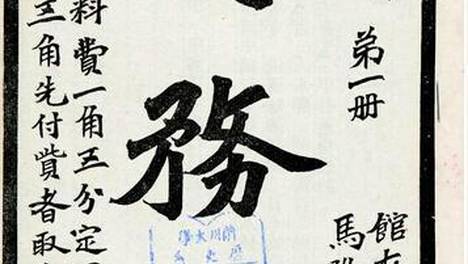 第一册
館
馬
務
料費一角五分定
角先付貲者取